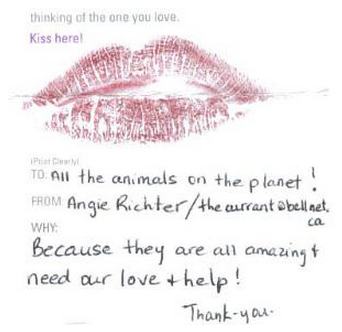 thinking of the one you love.
Kiss here!
(Print Clearly)
TO: All the animals on the planet!
FROM: Angie Richter/thecurrant@bellnet.
ca
WHY:
Because they are all amazing +
need our love + help!
Thank-you.